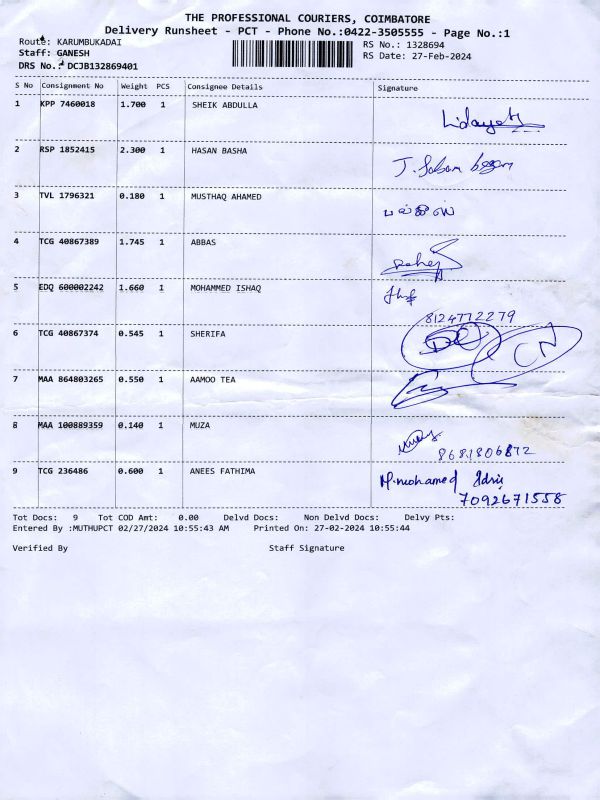 THE PROFESSIONAL COURIERS, COIMBATORE
Delivery Runsheet - PCT - Phone No.:0422-3505555 - Page No.:1
Route: KARUMBUKADAI
RS No.: 1328694
Staff: GANESH
RS Date: 27-Feb-2024
DRS No.: DCJB132869401
S No Consignment No Weight PCS Consignee Details Signature
1 KPP 7460018 1.700 1 SHEIK ABDULLA Hidayath
2 RSP 1852415 2.300 1 HASAN BASHA J. Sabam begam
3 TVL 1796321 0.180 1 MUSTHAQ AHAMED
4 TCG 40867389 1.745 1 ABBAS
5 EDQ 600002242 1.660 1 MOHAMMED ISHAQ
8124772279
6 TCG 40867374 0.545 1 SHERIFA CN
7 MAA 864803265 0.550 1 AAMOO TEA
8 MAA 100889359 0.140 1 MUZA
8681806872
9 TCG 236486 0.600 1 ANEES FATHIMA M.mohamed Idris
7092671558
Tot Docs: 9 Tot COD Amt: 0.00 Delvd Docs: Non Delvd Docs: Delvy Pts:
Entered By :MUTHUPCT 02/27/2024 10:55:43 AM Printed On: 27-02-2024 10:55:44
Verified By Staff Signature